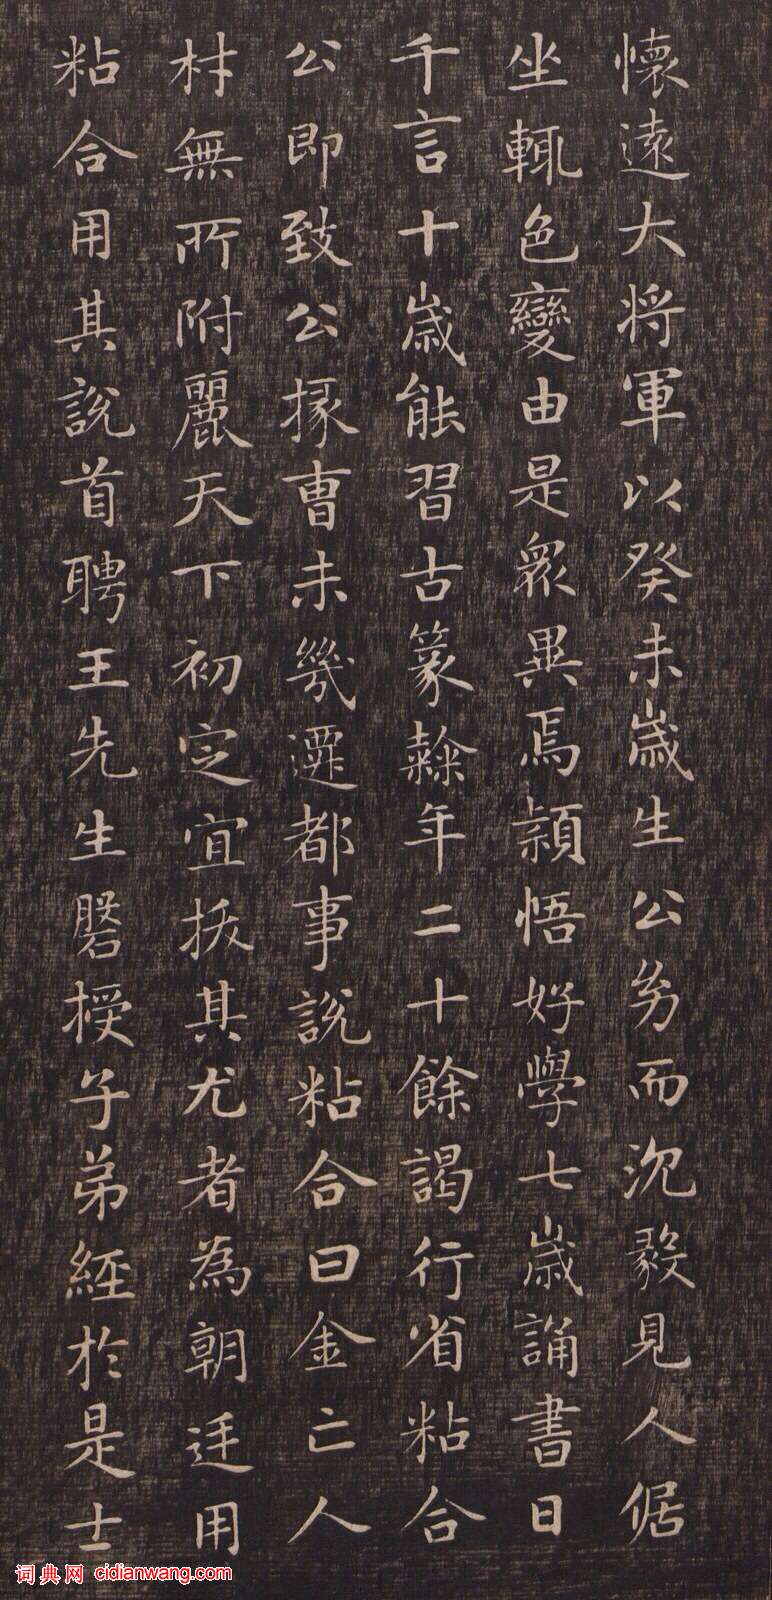 懷遠大将軍以癸未歲生公㓜而沉毅見人倨
坐輒色變由是衆異焉潁悟好學七歲誦書日
千言十歲能習古篆𨽻年二十餘謁行省粘合
公即致公掾曹未幾選都事說粘合曰金亡人
材無所附麗天下初定宜拔其尤者為朝廷用
粘合用其說首聘王先生磐授子弟經於是士
词典网 cidianwang.com